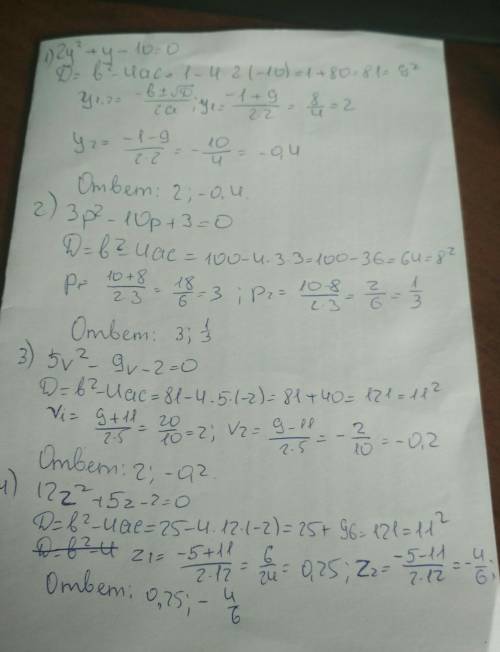 1) 2y² + y - 10 = 0
D = b² - 4ac = 1 - 4 · 2 (-10) = 1 + 80 = 81 = 9²
y₁,₂ = (-b ± √D)/2a ; y₁ = (-1 + 9)/(2·2) = 8/4 = 2
y₂ = (-1 - 9)/(2·2) = -10/4 = -0,4
Ответ: 2 ; -0,4.
2) 3p² - 10p + 3 = 0
D = b² - 4ac = 100 - 4 · 3 · 3 = 100 - 36 = 64 = 8²
p₁ = (10 + 8)/(2·3) = 18/6 = 3 ; p₂ = (10 - 8)/(2·3) = 2/6 = 1/3
Ответ: 3 ; 1/3
3) 5v² - 9v - 2 = 0
D = b² - 4ac = 81 - 4 · 5 · (-2) = 81 + 40 = 121 = 11²
v₁ = (9 + 11)/(2·5) = 20/10 = 2 ; v₂ = (9 - 11)/(2·5) = -2/10 = -0,2
Ответ: 2 ; -0,2.
4) 12z² + 5z - 2 = 0
D = b² - 4ac = 25 - 4 · 12 · (-2) = 25 + 96 = 121 = 11²
D = b² - 4 z₁ = (-5 + 11)/(2·12) = 6/24 = 0,25 ; z₂ = (-5 - 11)/(2·12) = -4/6 ;
Ответ: 0,25 ; -4/6